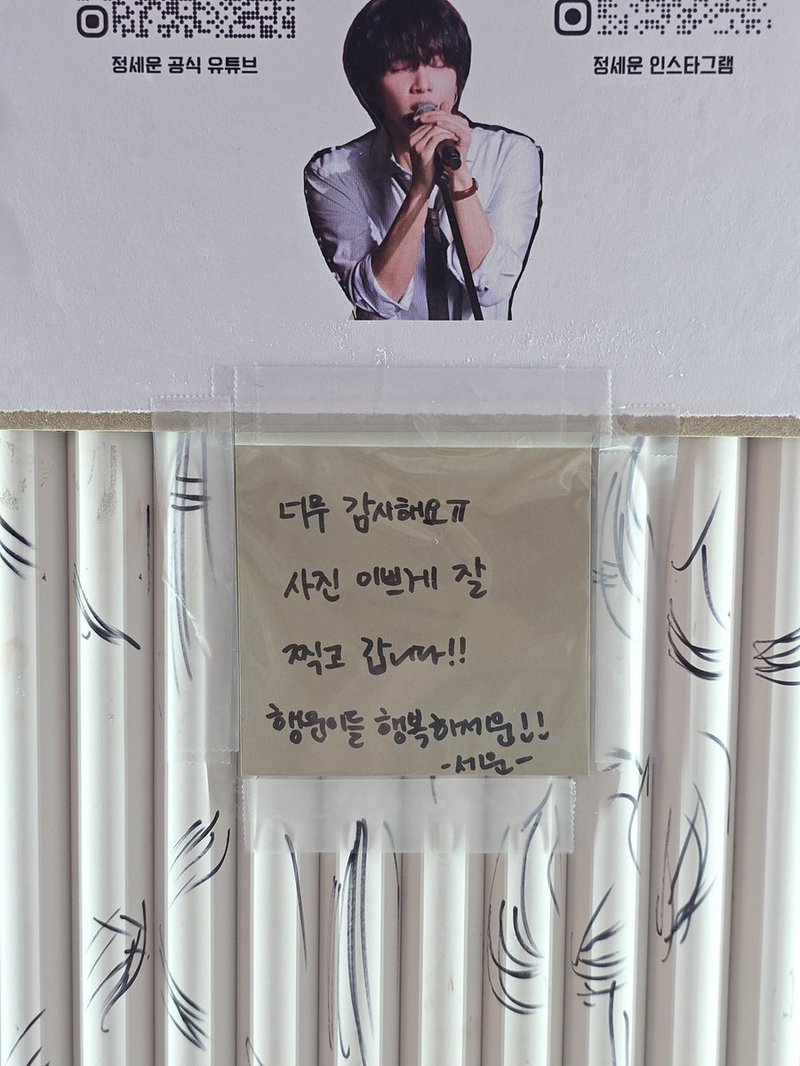 정세운 공식 유튜브
정세운 인스타그램
너무 감사해요ㅠ
사진 이쁘게 잘
찍고 갑니다!!
행운이들 행복하세운!!
-세운-